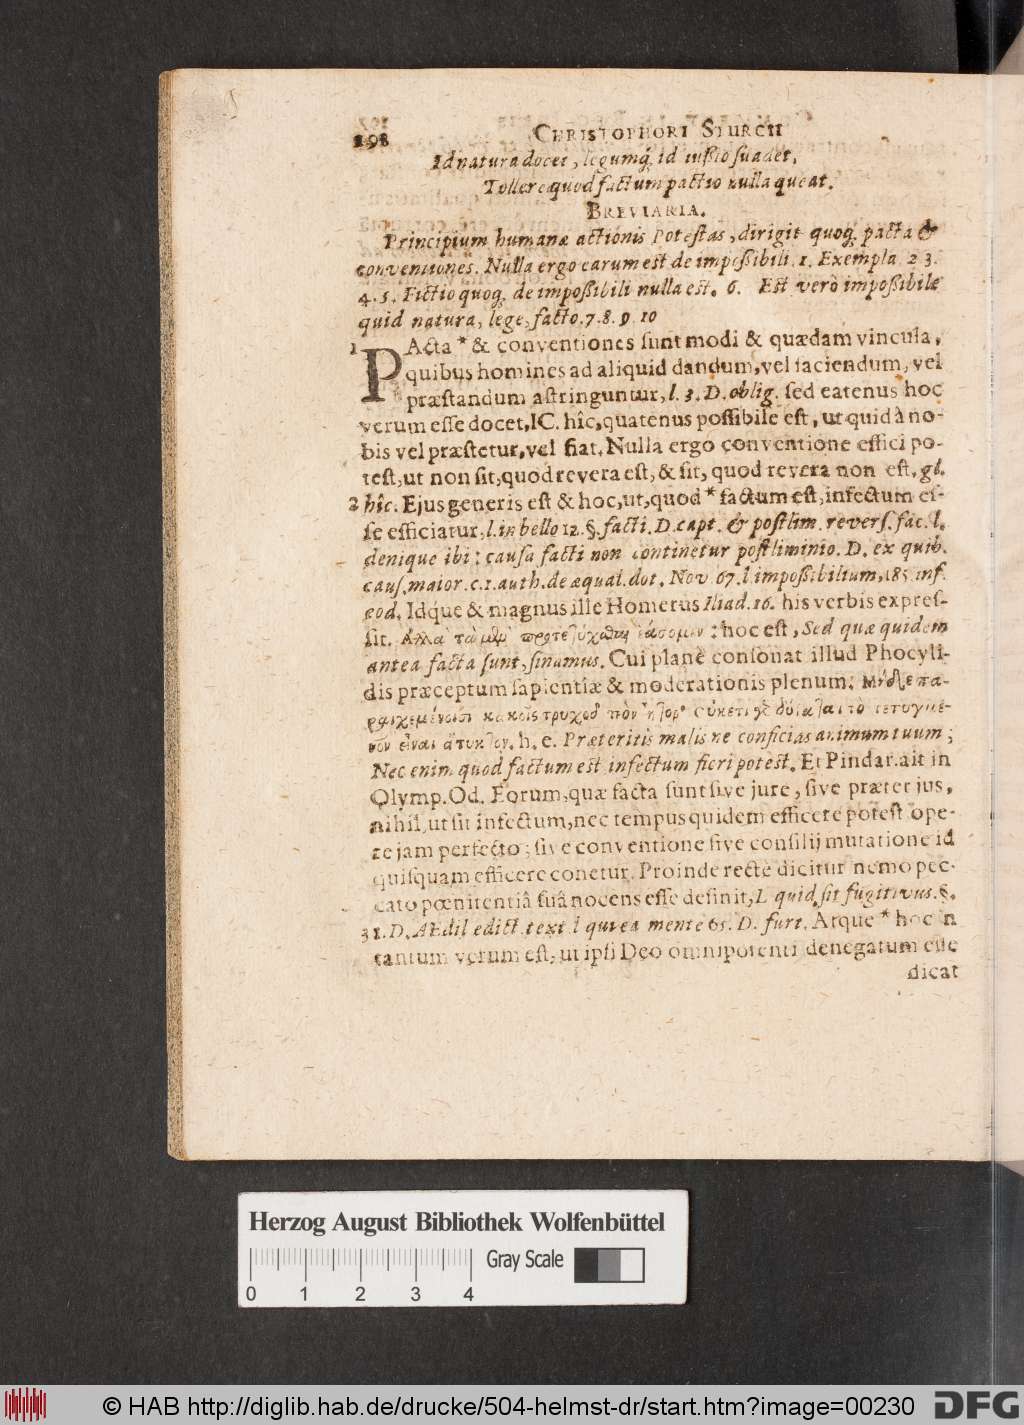 198 CHRISTOPHORI STURCII
Id natura docet, legumq́; id iussio suadet,
Tollere quod factum pactio nulla queat.
BREVIARIA.
Principium humanæ actionis Potestas, dirigit quoq; pacta &
conventiones. Nulla ergo earum est de impossibili. 1. Exempla. 2 3.
4. 5. Fictio quoq; de impossibili nulla est. 6. Est verò impossibile
quid natura, lege, facto. 7. 8. 9. 10
1 PActa * & conventiones sunt modi & quædam vincula,
quibus homines ad aliquid dandum, vel faciendum, vel
præstandum astringuntur, l. 3. D. oblig. sed eatenus hoc
verum esse docet, IC. hîc, quatenus possibile est, ut quid à no-
bis vel præstetur, vel fiat. Nulla ergo conventione effici po-
test, ut non sit, quod revera est, & sit, quod revera non est. gl.
2 hîc. Ejus generis est & hoc, ut, quod * factum est, infectum ef-
se efficiatur, l. in bello 12. §. facti. D. capt. & postlim. revers. fac. l.
denique ibi: causa facti non continetur postliminio. D. ex quib.
caus. maior. c. 1. auth. de æqual. dot. Nov. 67. l. impossibilium, 185. inf.
eod. Idque & magnus ille Homerus Iliad. 16. his verbis expres-
sit. : hoc est, Sed quæ quidem
antea facta sunt, sinamus. Cui planè consonat illud Phocyli-
dis præceptum sapientiæ & moderationis plenum:
h. e. Præteritis malis ne conficias animum tuum;
Nec enim quod factum est infectum fieri potest. Et Pindar. ait in
Olymp. Od. Eorum, quæ facta sunt sive jure, sive præter jus,
nihil, ut sit infectum, nec tempus quidem efficere potest ope-
re jam perfecto; sive conventione sive consilij mutatione id
quisquam efficere conetur. Proinde rectè dicitur nemo pec-
cato pœnitentiâ suâ nocens esse desinit, L. quid sit fugitivus. §.
31. D. AEdil edict. text l qui ea mente 65. D. furt. Atque * hoc in
tantum verum est, ut ipsi Deo omnipotenti denegatum esse
dicat
Herzog August Bibliothek Wolfenbüttel
Gray Scale
0 1 2 3 4
© HAB http://diglib.hab.de/drucke/504-helmst-dr/start.htm?image=00230
DFG